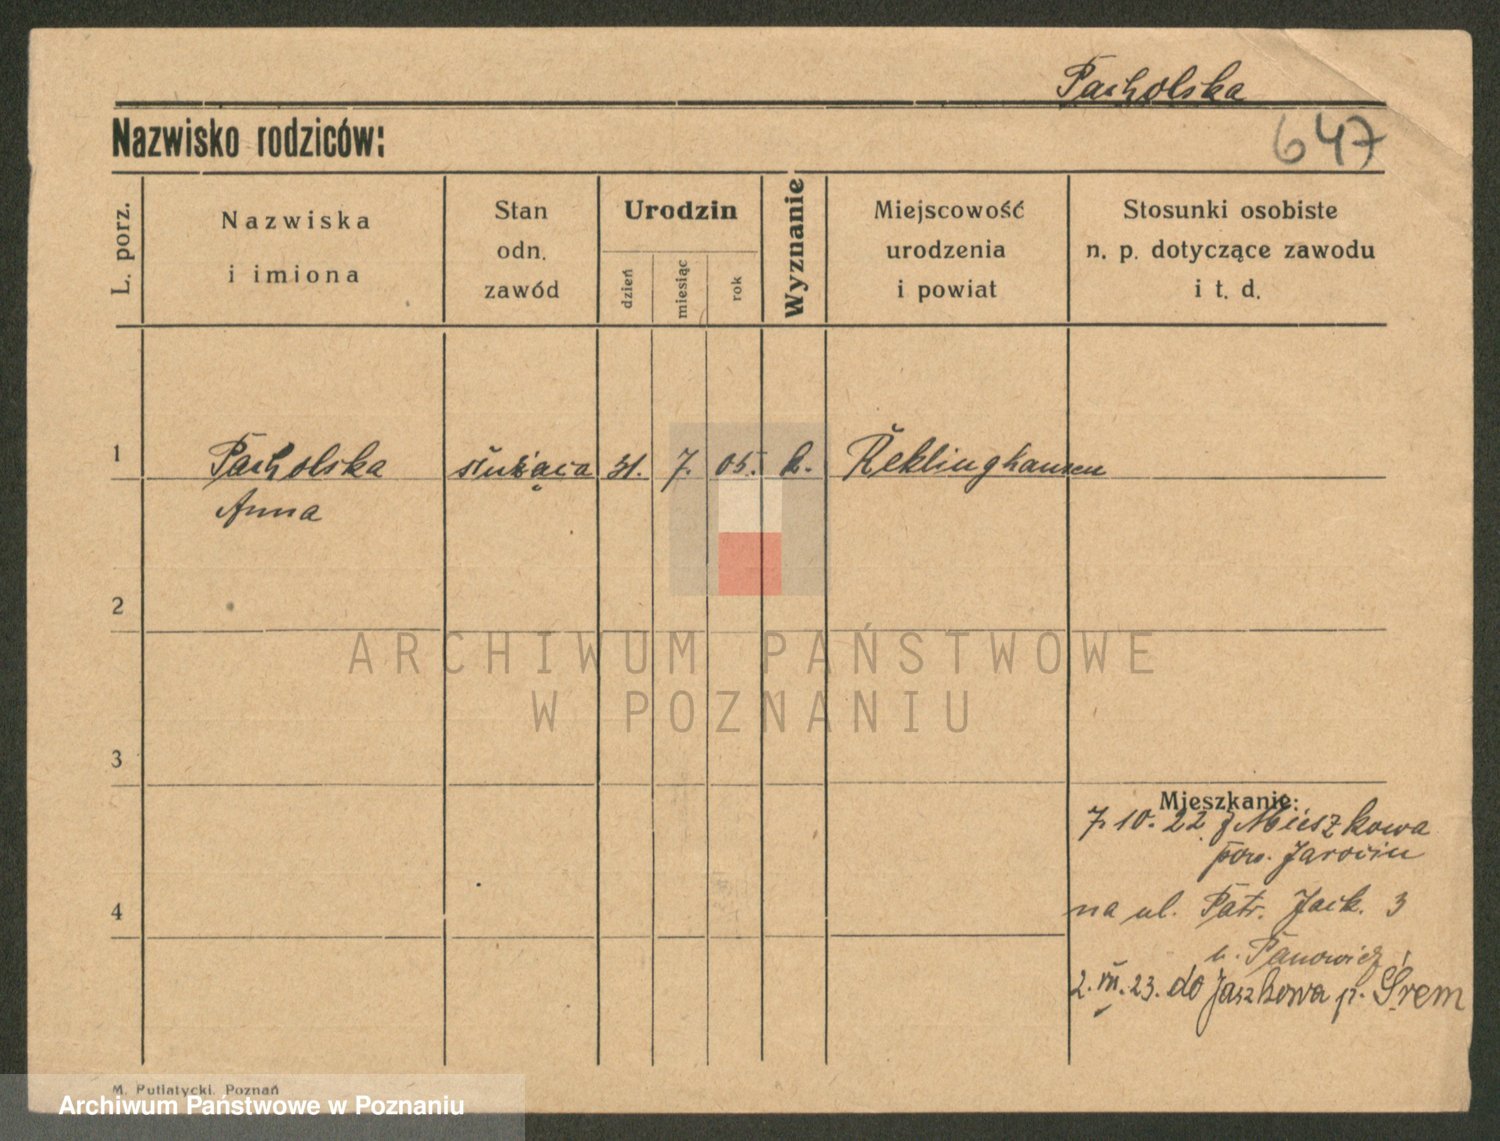 Pacholska
647
Nazwisko rodziców:
L. porz.
Nazwiska
i imiona
Stan
odn.
zawód
Urodzin
dzień
miesiąc
rok
Wyznanie
Miejscowość
urodzenia
i powiat
Stosunki osobiste
n. p. dotyczące zawodu
i t. d.
1 Pacholska służąca 31. 7. 05. k. Reklinghausen
Anna
2
ARCHIWUM PAŃSTWOWE
W POZNANIU
3
Mieszkanie:
7. 10. 22 z Mieszkowa
pow. Jarocin
4
na ul. Patr. Jack. 3
u. Panowicz
2. VII. 23. do Jaszkowa p. Śrem
M. Putiatycki. Poznań
Archiwum Państwowe w Poznaniu